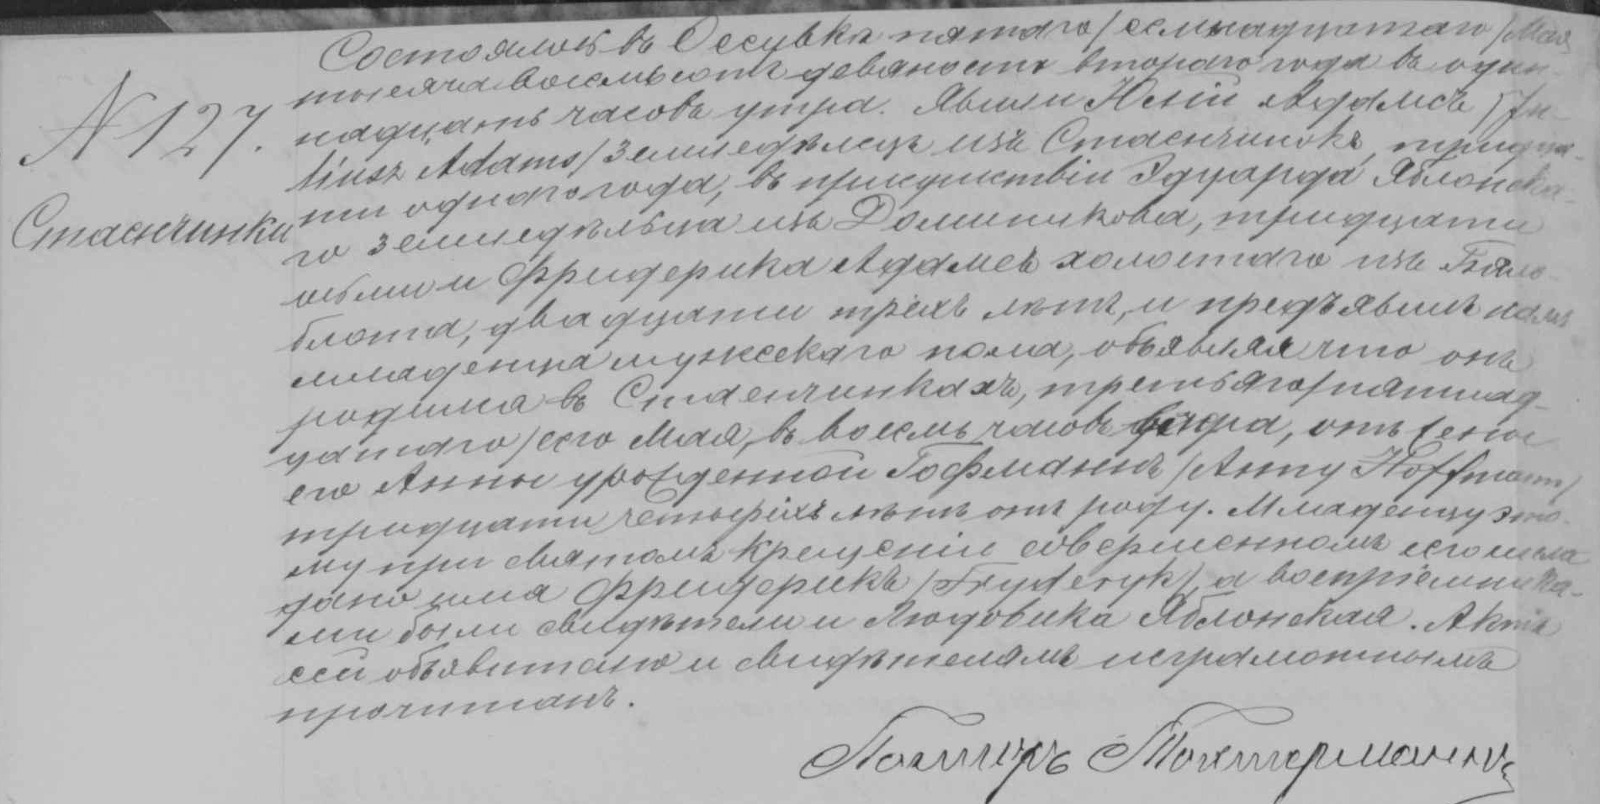 № 127.
Стаенчинки
Состоялось въ Осувка пятаго /семнадцатаго/ Мая
тысяча восемьсотъ девяносто втораго года въ один-
надцать часовъ утра. Явился Юлій Адамсъ /Ju-
liusz Adams/ земледѣлецъ изъ Стаенчинокъ, тридца-
ти одного года, въ присутствіи Эдуарда Яблонска-
го земледѣльца изъ Доминикова, тридцати
и Фридерика Адамсъ холостаго изъ Бяло-
блота, двадцати трехъ лѣтъ, и предъявилъ намъ
младенца мужескаго пола, объявляя что онъ
родился въ Стаенчинкахъ, третьяго /пятнад-
цатаго/ сего Мая, въ восемь часовъ утра, отъ жены
его Анны урожденной Гофманнъ /Anny Hoffmann/
тридцати четырехъ лѣтъ отъ роду. Младенцу это-
му при святомъ крещеніи совершенномъ сего числа
дано имя Фридерикъ /Fryderyk/, а воспріемника-
ми были свидѣтели и Людовика Яблонская. Актъ
сей объявителю и свидѣтелямъ неграмотнымъ
прочитанъ.
Пасторъ